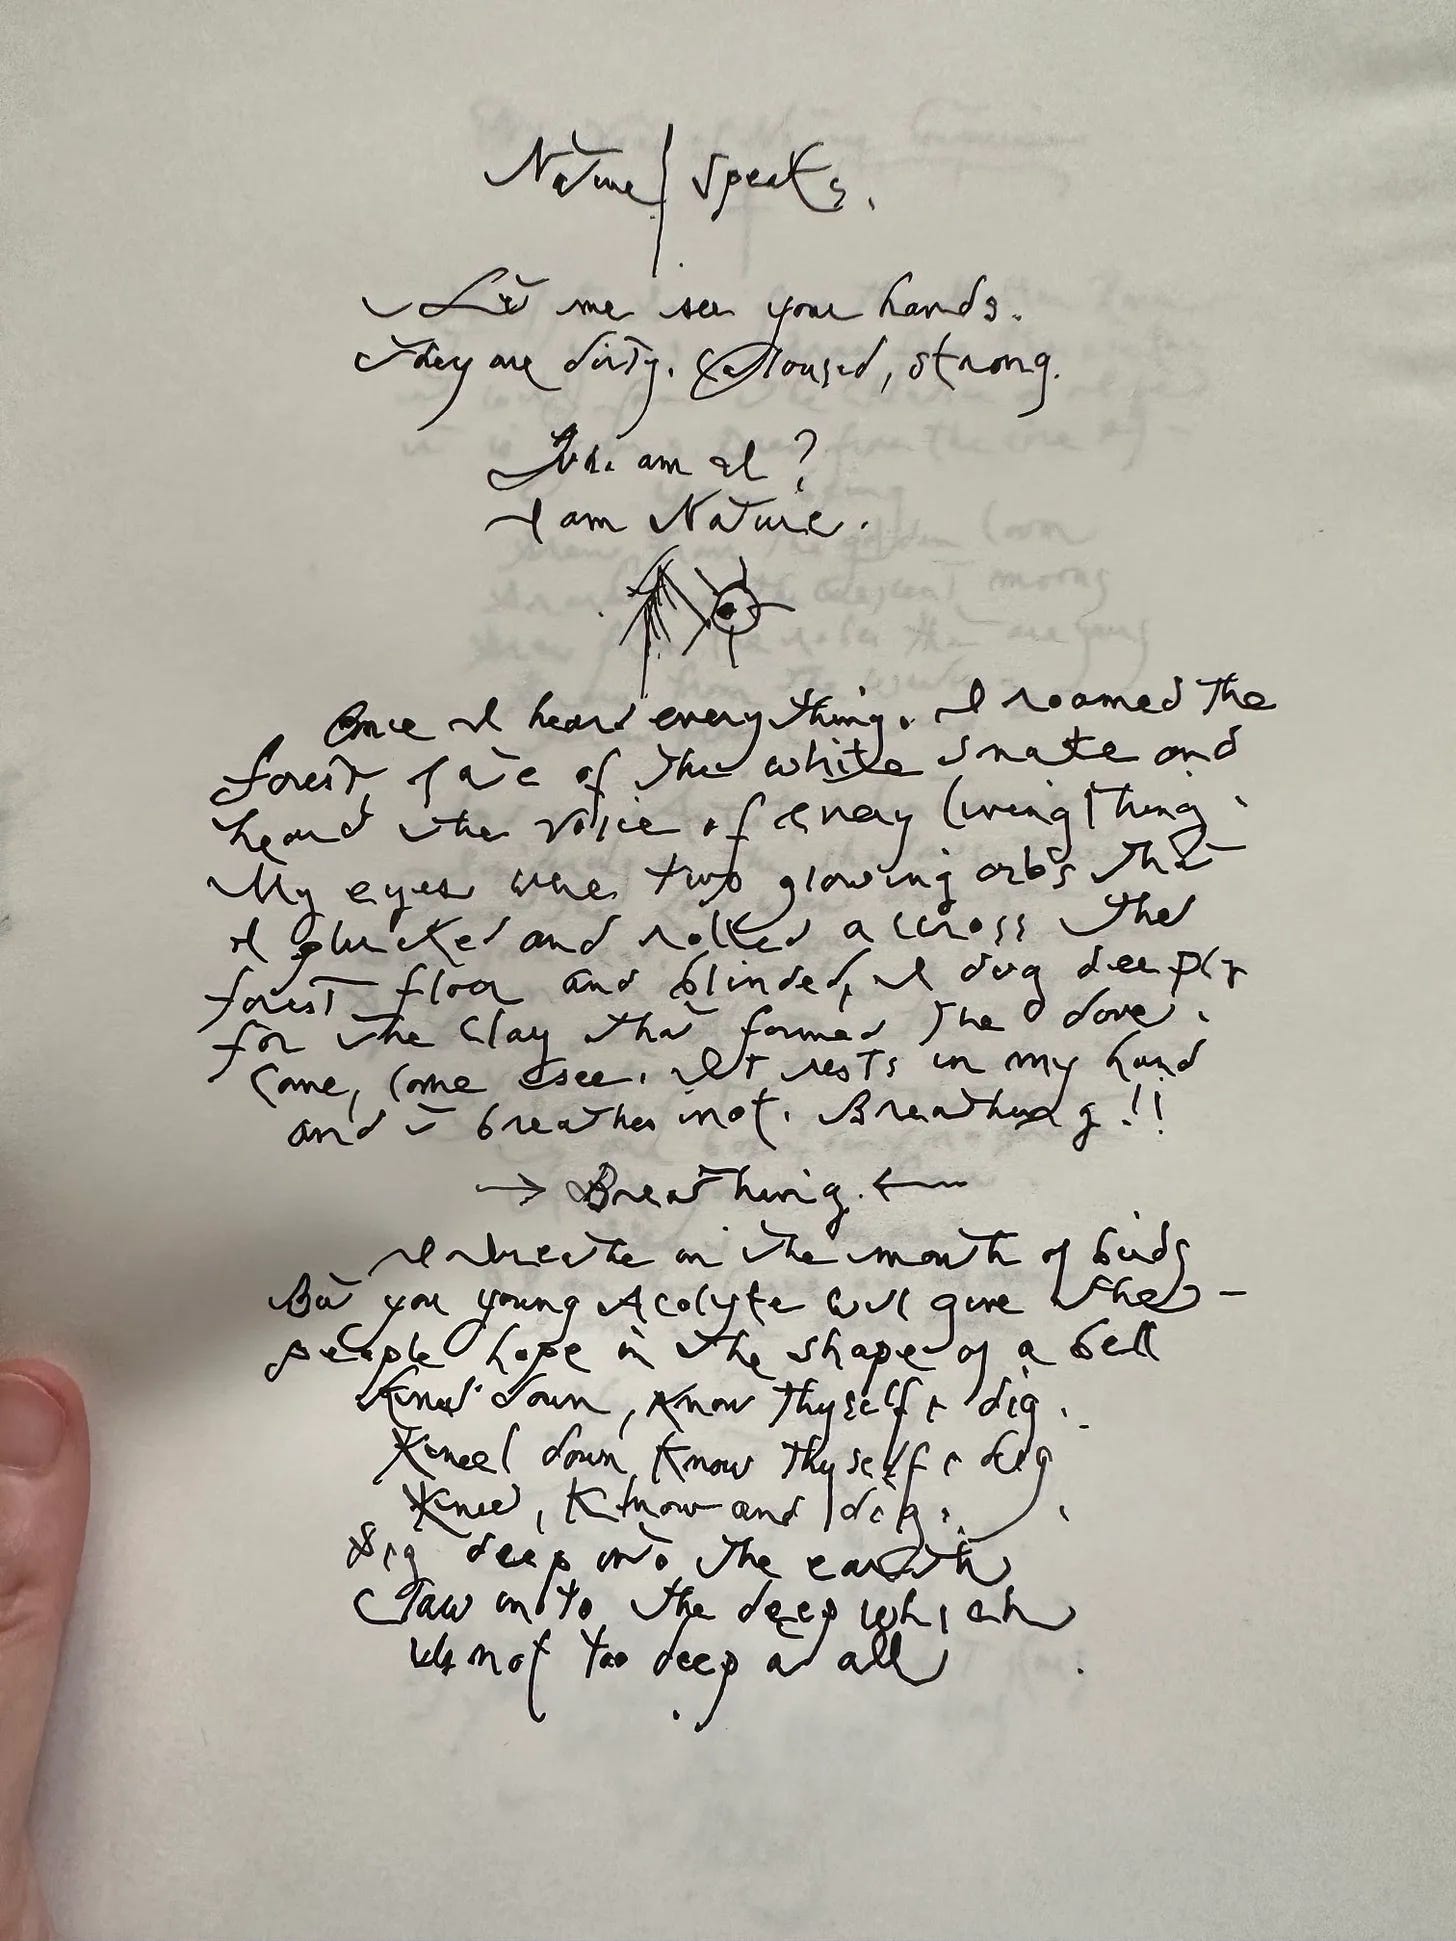 Nature speaks.
Let me see your hands.
They are dirty. Calloused, strong.
Who am I?
I am Nature.
Once I heard everything. I roamed the
forest, ate of the white snake and
heard the voice of every living thing.
My eyes were two glowing orbs that
I plucked and rolled accross the
forest floor and blinded, I dug deeply
for the clay that formed the dove.
Come, come see. It rests in my hand
and it breathes not. Breathing!!
→ Breathing. ←
I breathe in the mouth of birds
But you young Acolyte will give the
people hope in the shape of a bell
Kneel down, know thyself & dig.
Kneel down, know thyself & dig
Kneel, know and dig.
Dig deep into the earth
Claw into the deep which
is not too deep at all